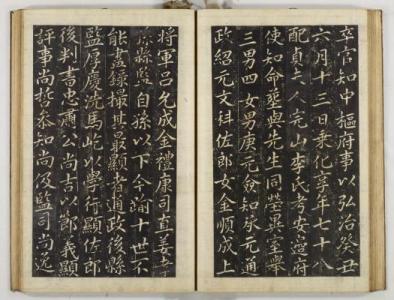 卒官知中樞府事以弘治癸丑
六月十三日乘化享年七十八
配貞夫人完山李氏考安府
使知命葬與先生同塋異室擧
三男四女男庚元僉知永元通
政紹元文科佐郎女金順成上
將軍呂允成金禮康司直姜孝
縣監自孫以下今踰十世不
能盡錄撮其最顯者通政後縣
監厚慶洗馬屹以學行顯佐郎
後判書忠肅公尚吉以節義顯
評事尚哲參知尚伋監司尚逸